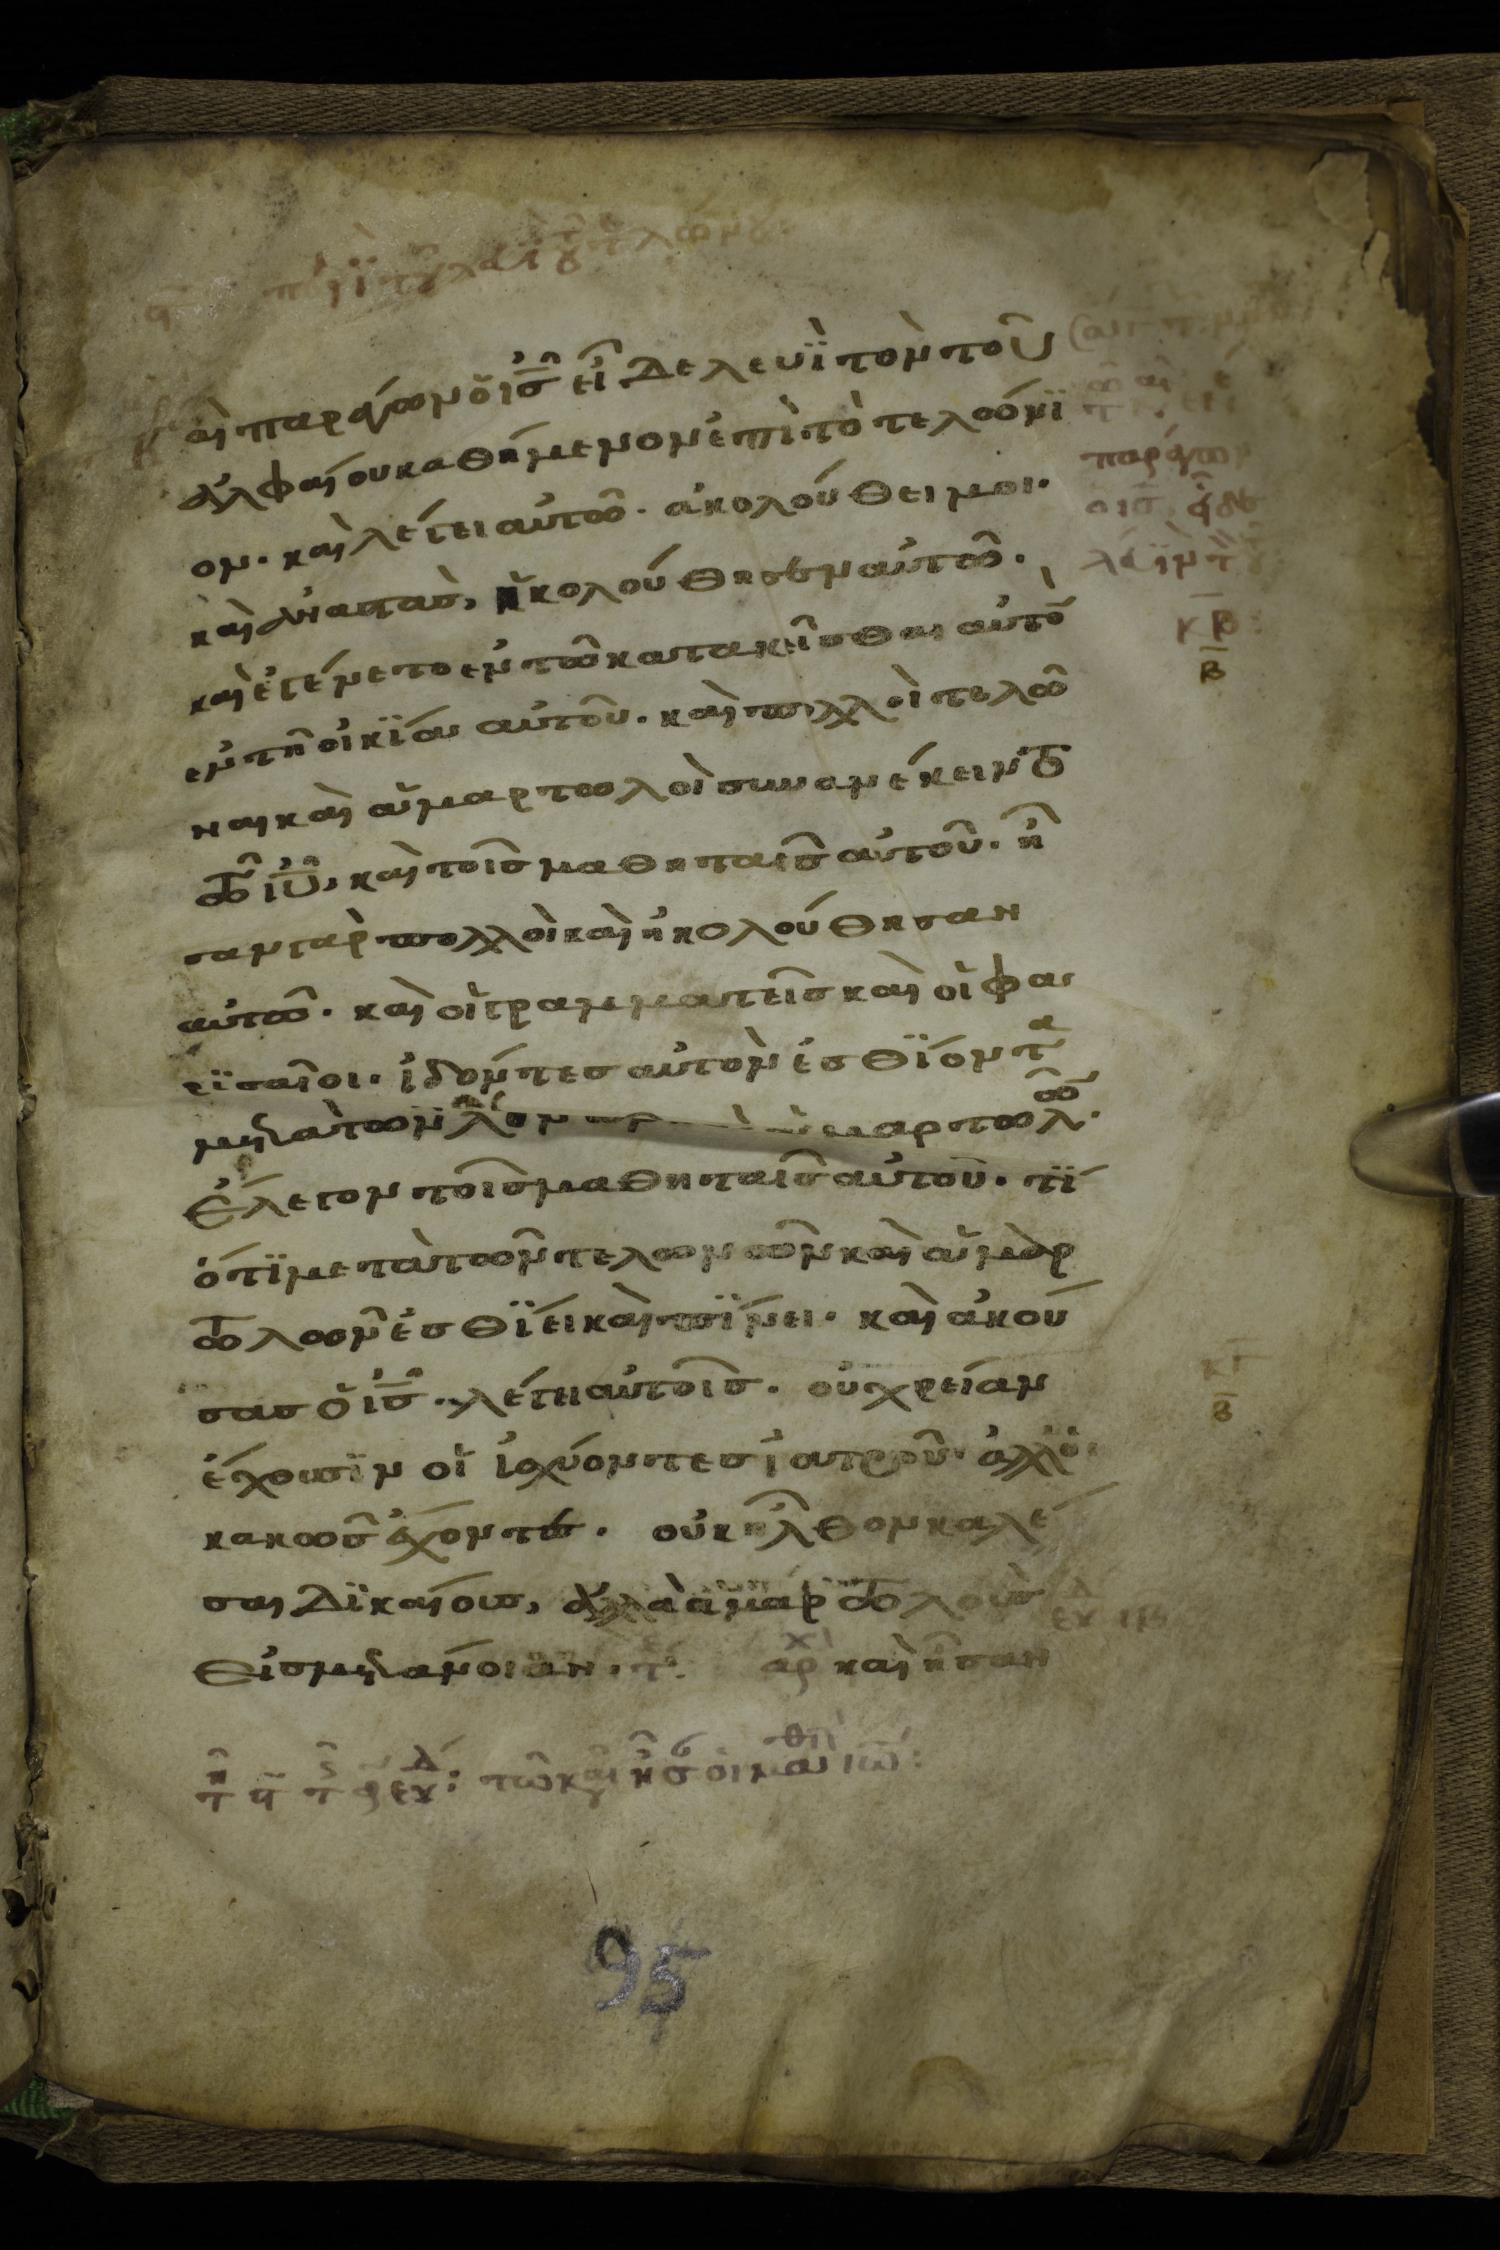 καὶ παράγων ὁ ι̅ς̅ εἶδε λευῒ τὸν τοῦ
ἀλφαίου καθήμενον ἐπὶ τὸ τελώνϊ
ον. καὶ λέγει αὐτῶ. ἀκολούθει μοι.
καὶ ἀναστὰς, ἠκολούθησεν αὐτῶ.
καὶ ἐγένετο ἐν τῶ κατακεῖσθαι αὐτὸ
ἐν τῆ οἰκΐα αὐτοῦ. καὶ πολλοὶ τελῶ
ναι καὶ ἁμαρτωλοὶ συνανέκειντο
τῶ ι̅υ̅, καὶ τοῖς μαθηταῖς αὐτοῦ. ἦ
σαν γὰρ πολλοὶ καὶ ἠκολούθησαν
αὐτῶ. καὶ οἱ γραμματεῖς καὶ οἱ φα
ρϊσαῖοι. ἰδόντες αὐτὸν ἐσθΐοντα
μετὰ τῶν ἁμαρτωλῶ.
ἔλεγον τοῖς μαθηταῖς αὐτοῦ. τΐ
ὅτϊ μετὰ τῶν τελωνῶν καὶ ἁμαρ
τωλῶν ἐσθΐει καὶ πΐνει. καὶ ἀκού
σας ὁ ι̅ς̅. λέγει αὐτοῖς. οὐ χρείαν
ἔχουσϊν οἱ ἰσχύοντες ἰατροῦ. ἀλλ' οἱ
κακῶς ἔχοντες. οὐκ ἦλθον καλέ
σαι δϊκαίους, ἀλλὰ ἁμαρτωλοὺς
εἰς μετάνοιαν. τε αρχ καὶ ἦσαν
παράγων
ὁ ις
κ̅β̅:
β̅
κ̅γ̅
β̅
95